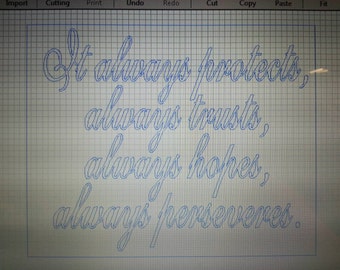 Import Cutting Print Undo Redo Cut Copy Paste Fit
It always protects,
always trusts,
always hopes,
always perseveres.